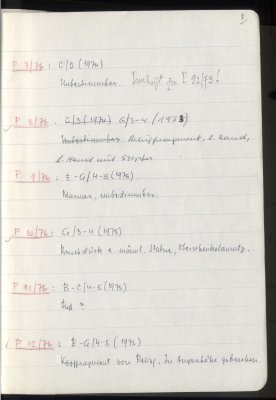 9
P 7/76 : C/2 (1974)
Unbestimmbar. gehört zu I 92/73!
P 8/76 : C/3 (1974) G/3-4 (1973)
Unbestimmbar Relieffragment, l. Rand,
l. Hand mit Szepter.
P 9/76 : E-G/4-5 (1975).
Marmor, unbestimmbar.
P 10/76 : G/3-4 (1975)
Bruchstück e. männl. Statue, Oberschenkelansatz.
P 11/76 : B-C/4-5 (1975)
Fuß ?
P 12/76 : E-G/4-5 (1975)
Kopffragment von Relief. In Augenhöhe gebrochen.